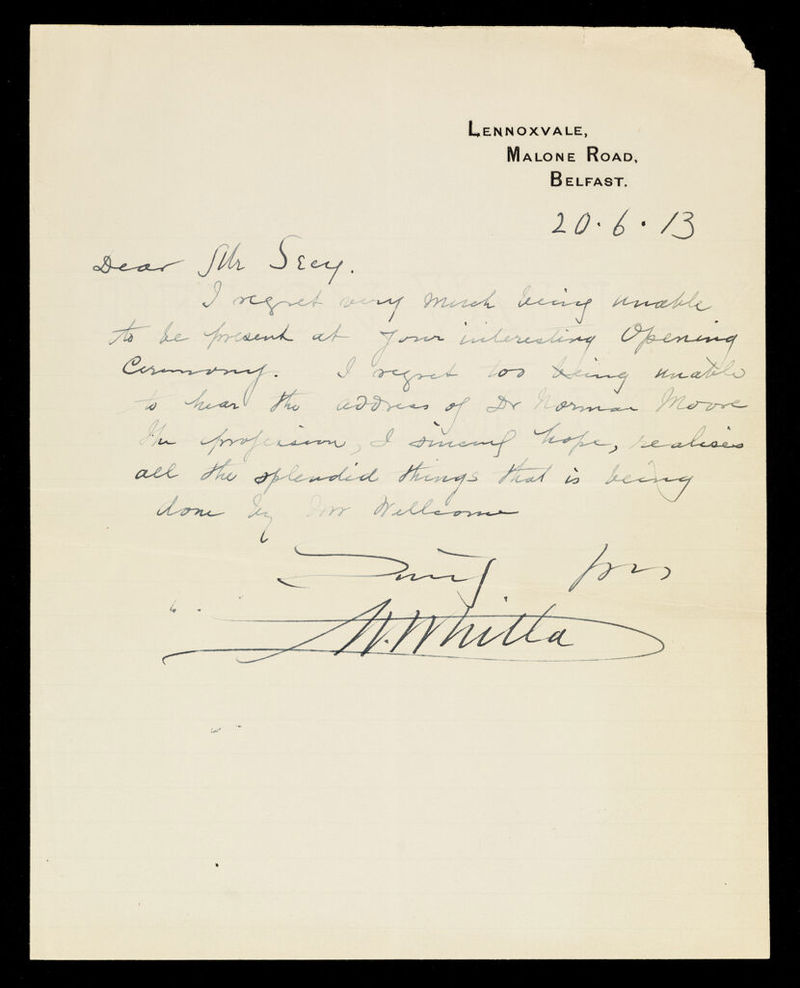 LENNOXVALE,
MALONE ROAD,
BELFAST.
20.6.13
Dear Mr Secy.
I regret very much being unable
to be present at your interesting Opening
Ceremony. I regret too being unable
to hear the address of Dr Norman Moore
the profession, I sincerely hope, realises
all the splendid things that is being
done by Mr Wellcome
yrs
W. Whitla